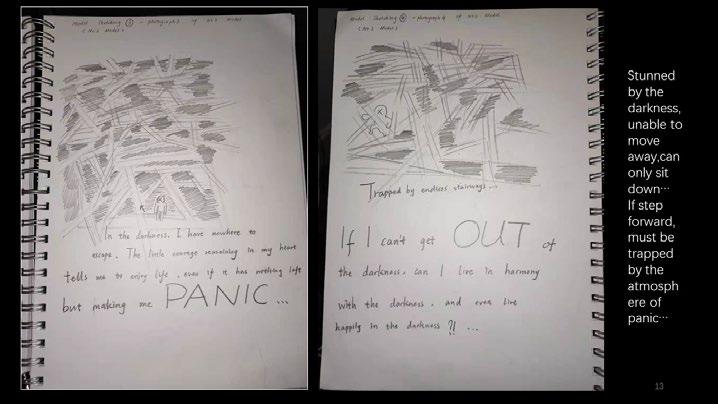 Model Sketching ③ - photograph3 of No.2 Model
(No.2 Model)
In the darkness, I have nowhere to
escape. The little courage remaining in my heart
tells me to enjoy life, even if it has nothing left
but making me PANIC ...
Model Sketching ④ - photograph4 of No.2 Model
(No.2 Model)
Trapped by endless stairways...
If I can't get OUT of
the darkness, can I live in harmony
with the darkness, and even live
happily in the darkness ?! ...
Stunned
by the
darkness,
unable to
move
away,can
only sit
down…
If step
forward,
must be
trapped
by the
atmosph
ere of
panic…
13